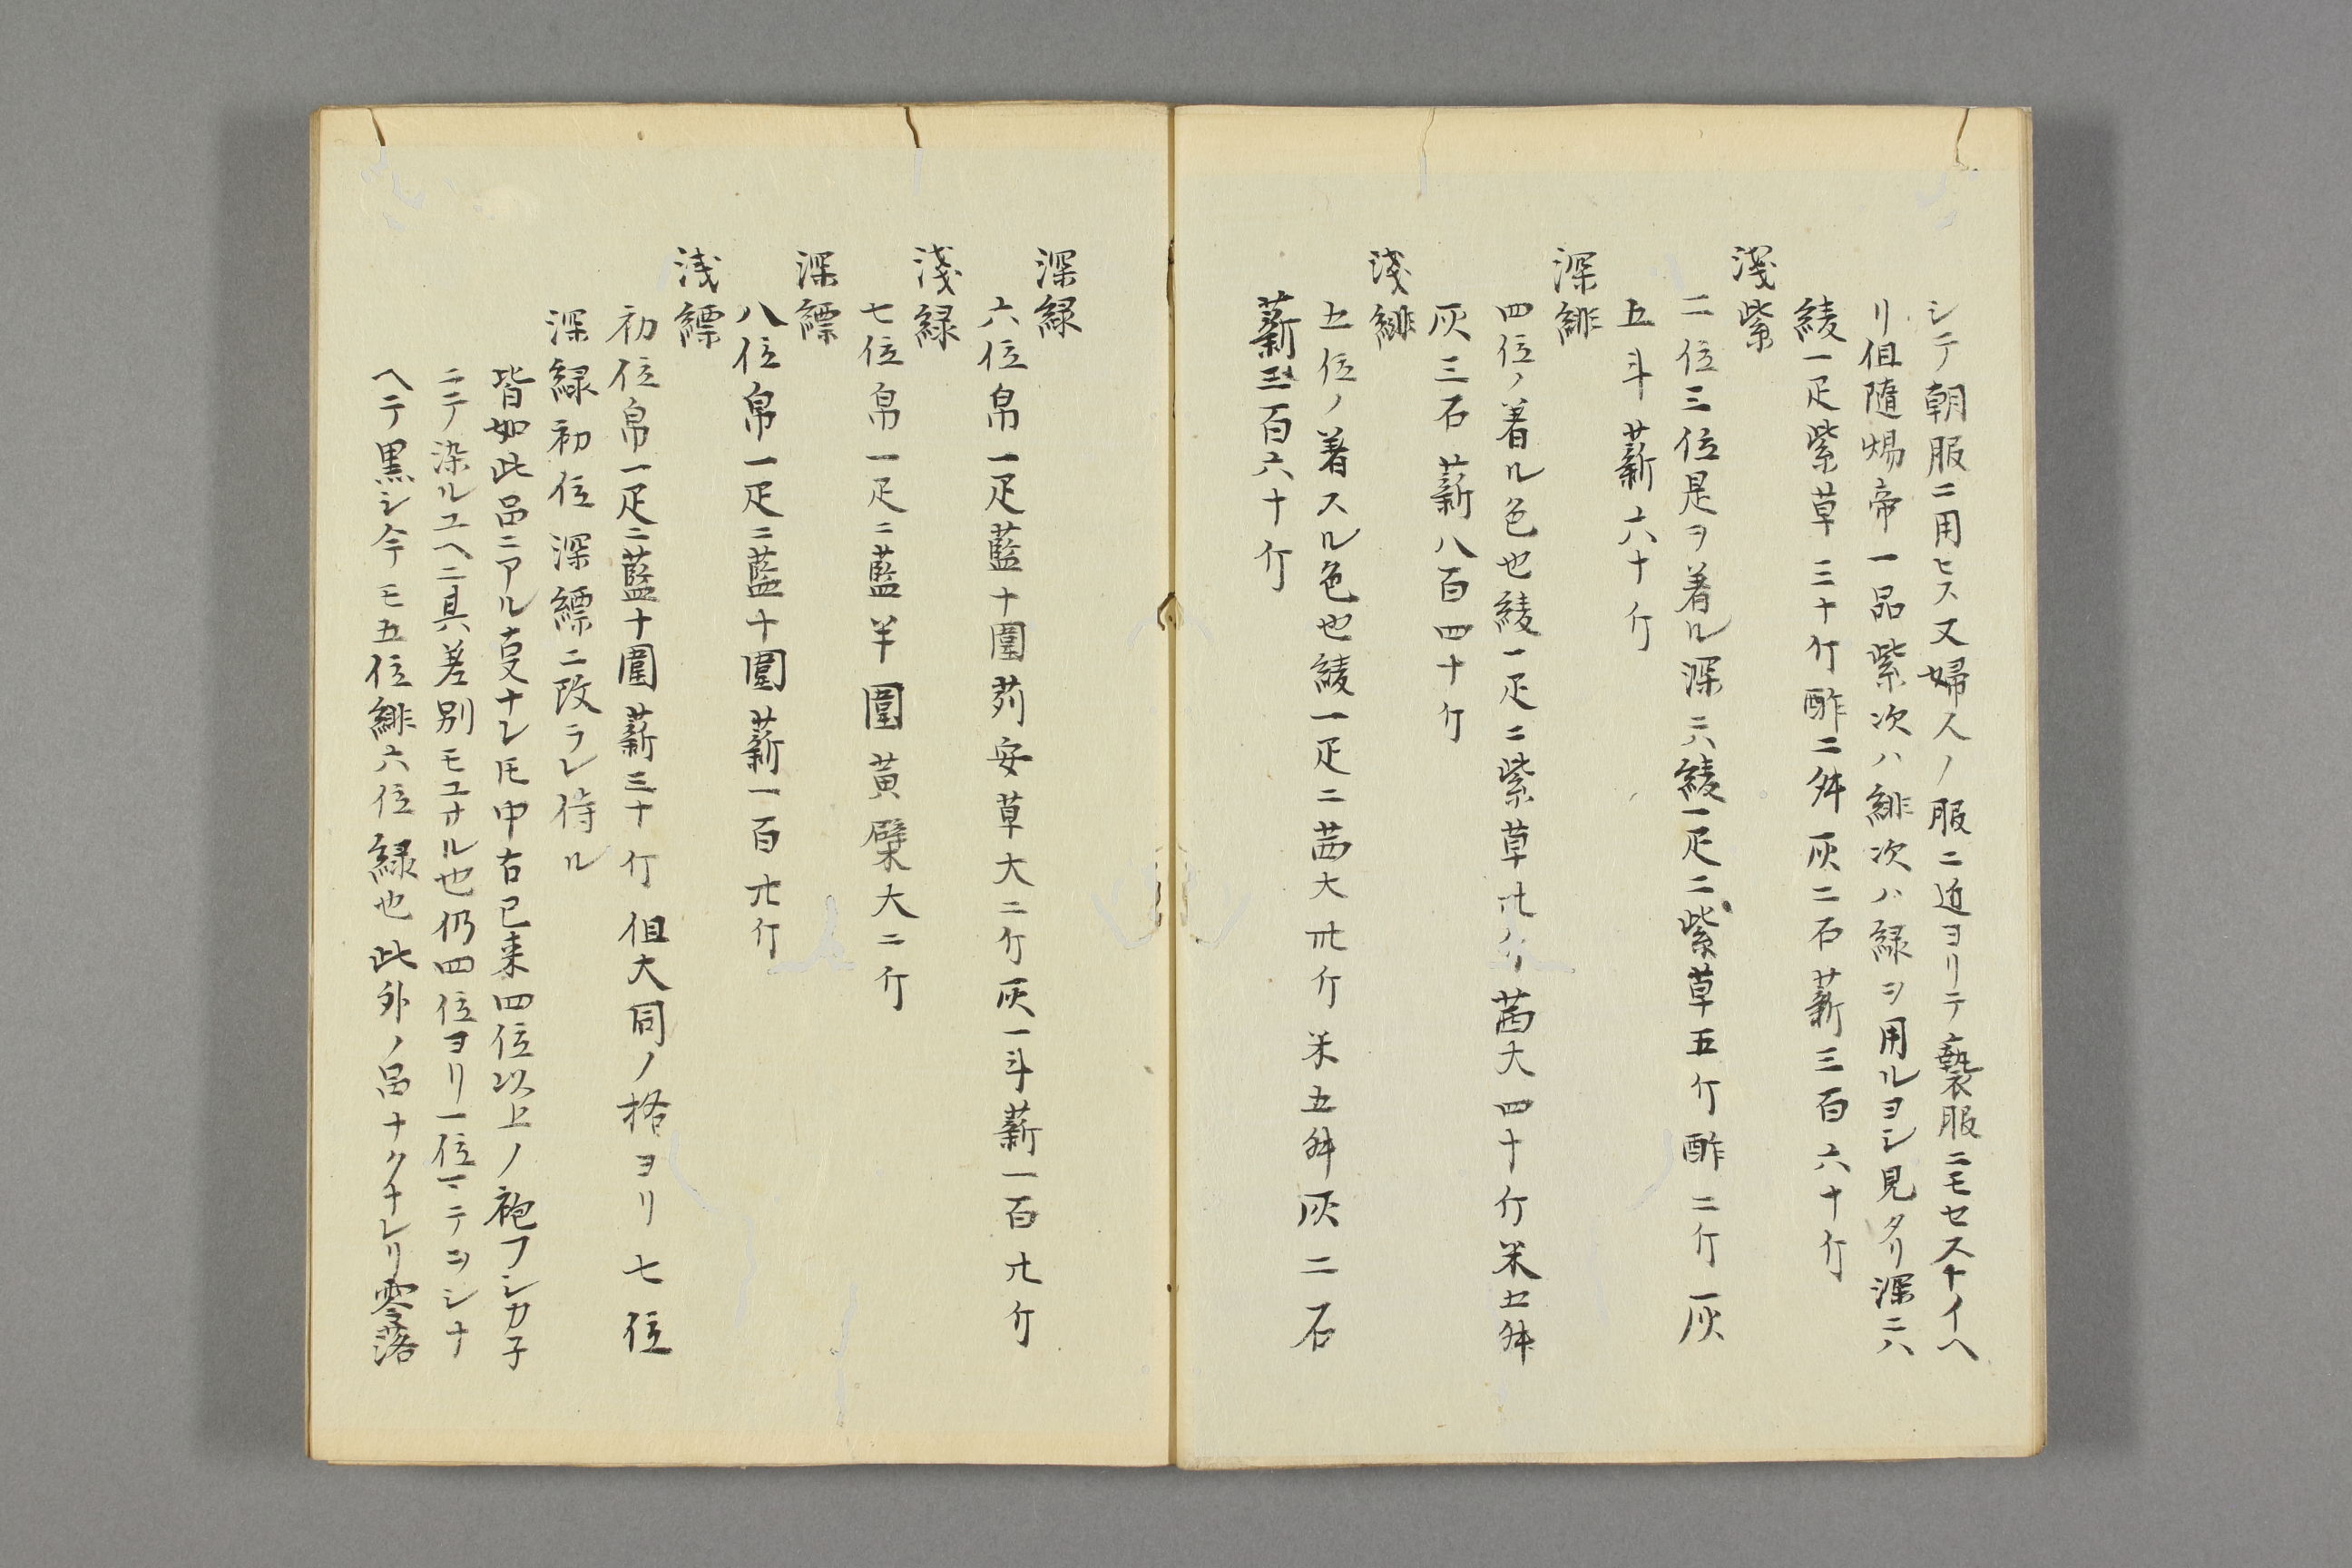 シテ朝服ニ用ヒス又婦人ノ服ニ近ヨリテ褻服ニモセストイヘ
リ但隨煬帝一品紫次ハ緋次ハ緑ヲ用ルヨシ見タリ深ニハ
綾一疋紫草三十斤酢二舛灰二石薪三百六十斤
淺紫
二位三位是ヲ着ル深ニハ綾一疋ニ紫草五斤酢二斤灰
五斗薪六十斤
深緋
四位ノ着ル色也綾一疋ニ紫草卅斤茜大四十斤米五舛
灰三石薪八百四十斤
淺緋
五位ノ着スル色也綾一疋ニ茜大卅斤米五舛灰二石
薪三百六十斤
深緑
六位帛一疋藍十圍苅安草大二斤灰一斗薪一百廿斤
淺緑
七位帛一疋ニ藍半圍黄檗大二斤
深縹
八位帛一疋ニ藍十圍薪一百廿斤
浅縹
初位帛一疋ニ藍十圍薪三十斤但大同ノ格ヨリ七位
深緑初位深縹ニ改ラレ侍ル
皆如此品ニアル叓ナレ𪜈中古已来四位以上ノ袍フシカ子
ニテ染ルユヘニ具差別モユオル也仍四位ヨリ一位マテヲシナ
ヘテ黒シ今モ五位緋六位緑也此外ノ品ナクナレリ零落